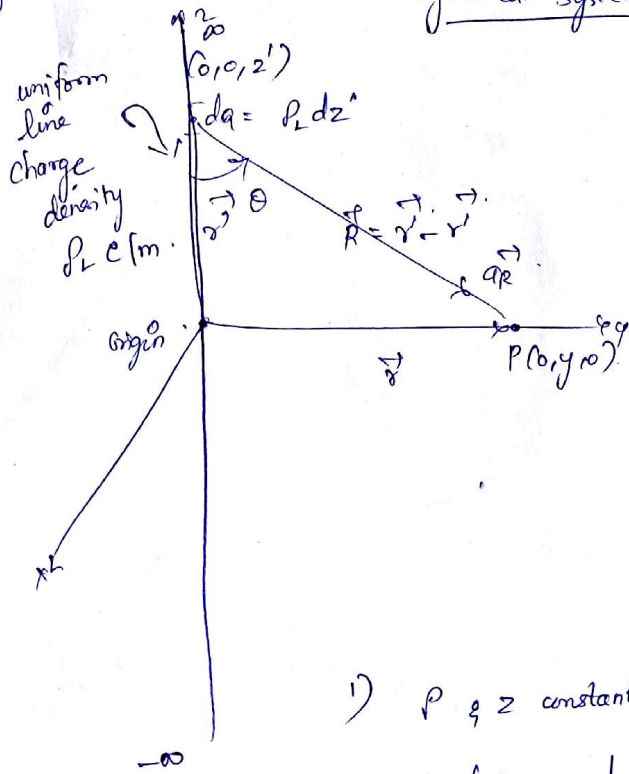 system
z
∞
(0,0,z')
uniform
line
charge
density
ρL c/m.
dq = ρL dz'
θ
r⃗'
R⃗ = r⃗ - r⃗'
aR⃗
origin
r⃗
P(0,y,0)
y
x
-∞
1) ρ & z constant